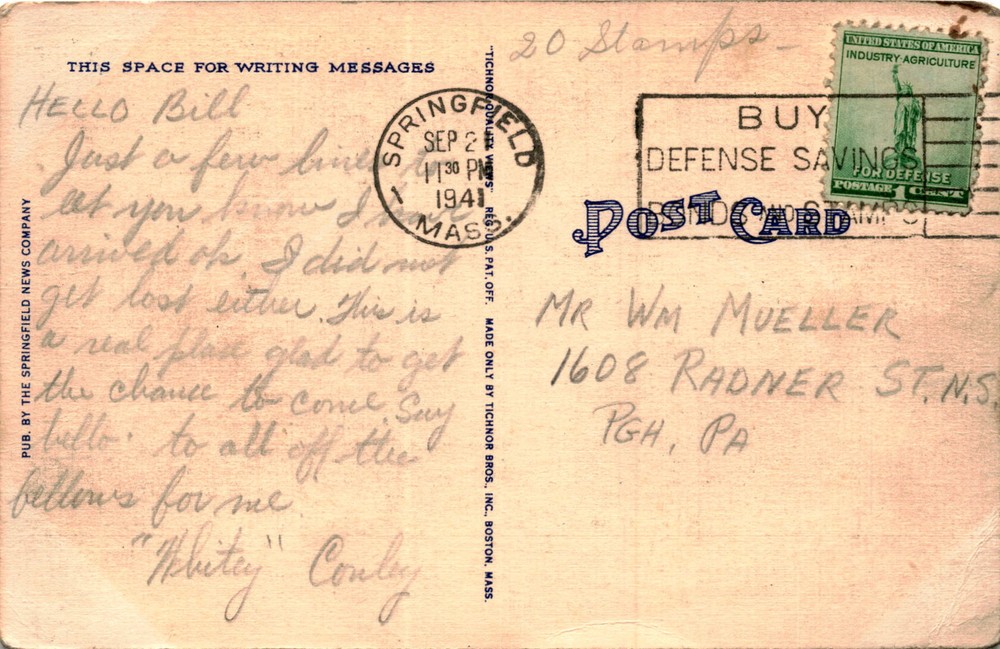 THIS SPACE FOR WRITING MESSAGES
HELLO Bill
Just a few lines to
let you know I have
arrived ok. I did not
get lost either. This is
a real place glad to get
the chance to come. Say
hello to all off the
fellows for me
"Whitey" Conley
PUB. BY THE SPRINGFIELD NEWS COMPANY
"TICHNOR QUALITY VIEWS" REG. U.S. PAT. OFF. MADE ONLY BY TICHNOR BROS., INC., BOSTON, MASS.
20 Stamps -
SPRINGFIELD
SEP 2
11 30 PM
1941
1 MASS.
BUY
DEFENSE SAVINGS
BONDS AND STAMPS
UNITED STATES OF AMERICA
INDUSTRY-AGRICULTURE
FOR DEFENSE
POSTAGE 1 CENT
POST CARD
MR WM MUELLER
1608 RADNER ST. N.S.
PGH, PA